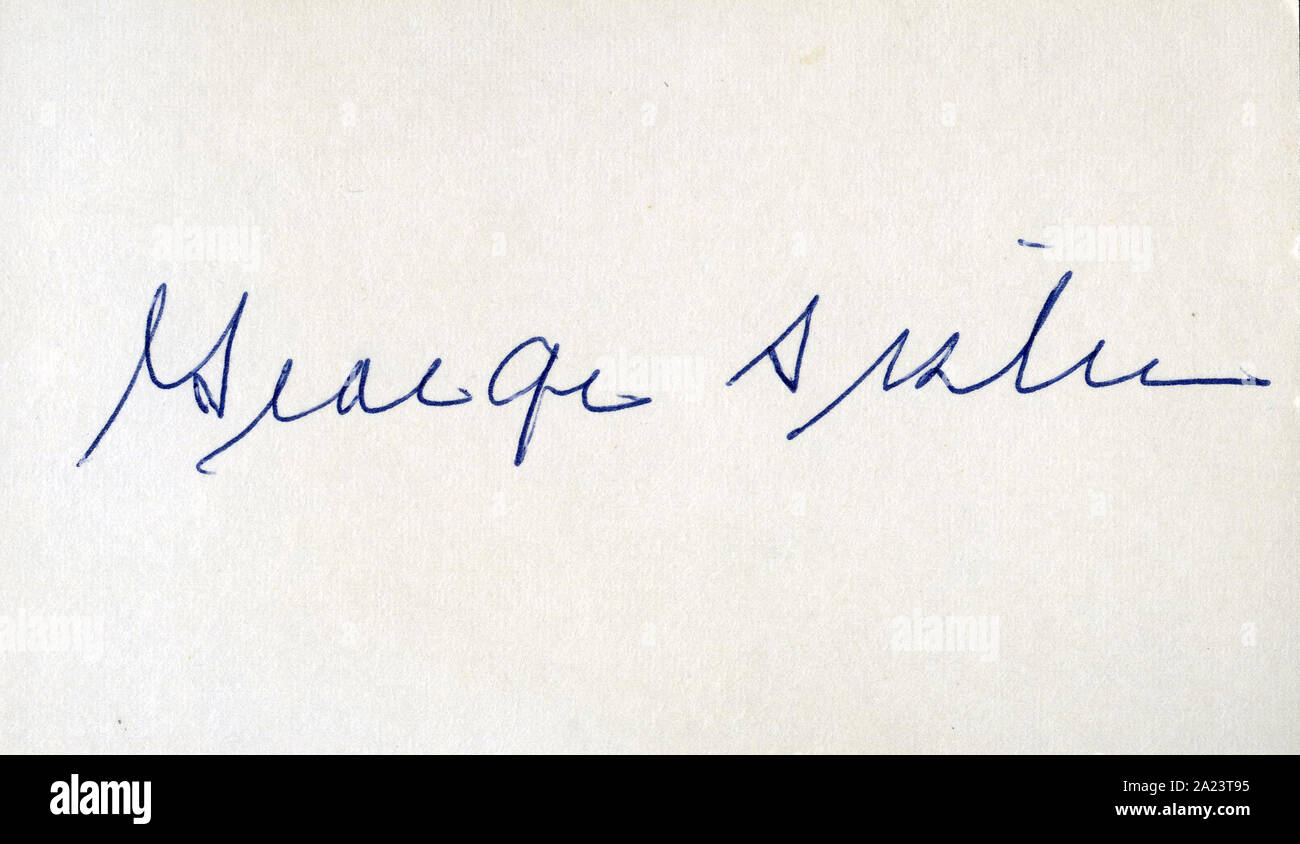 George Sisler
alamy
alamy
alamy
alamy
alamy
a alamy
Image ID: 2A23T95
www.alamy.com